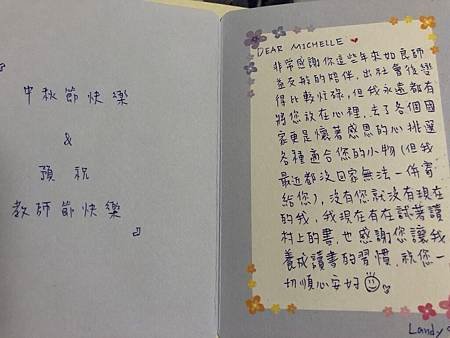 『
中秋節快樂
&
預祝
教師節快樂
』
DEAR MICHELLE
非常感謝你這些年來如良師
益友般的陪伴,出社會後變
得比較忙碌,但我永遠都有
將您放在心裡,去了各個國
家更是懷著感恩的心挑選
各種適合您的小物(但我
最近都沒回家無法一併寄
給您),沒有您就沒有現在
的我,我現在有在試著讀
村上的書,也感謝您讓我
養成讀書的習慣,祝您一
切順心安好
Landy